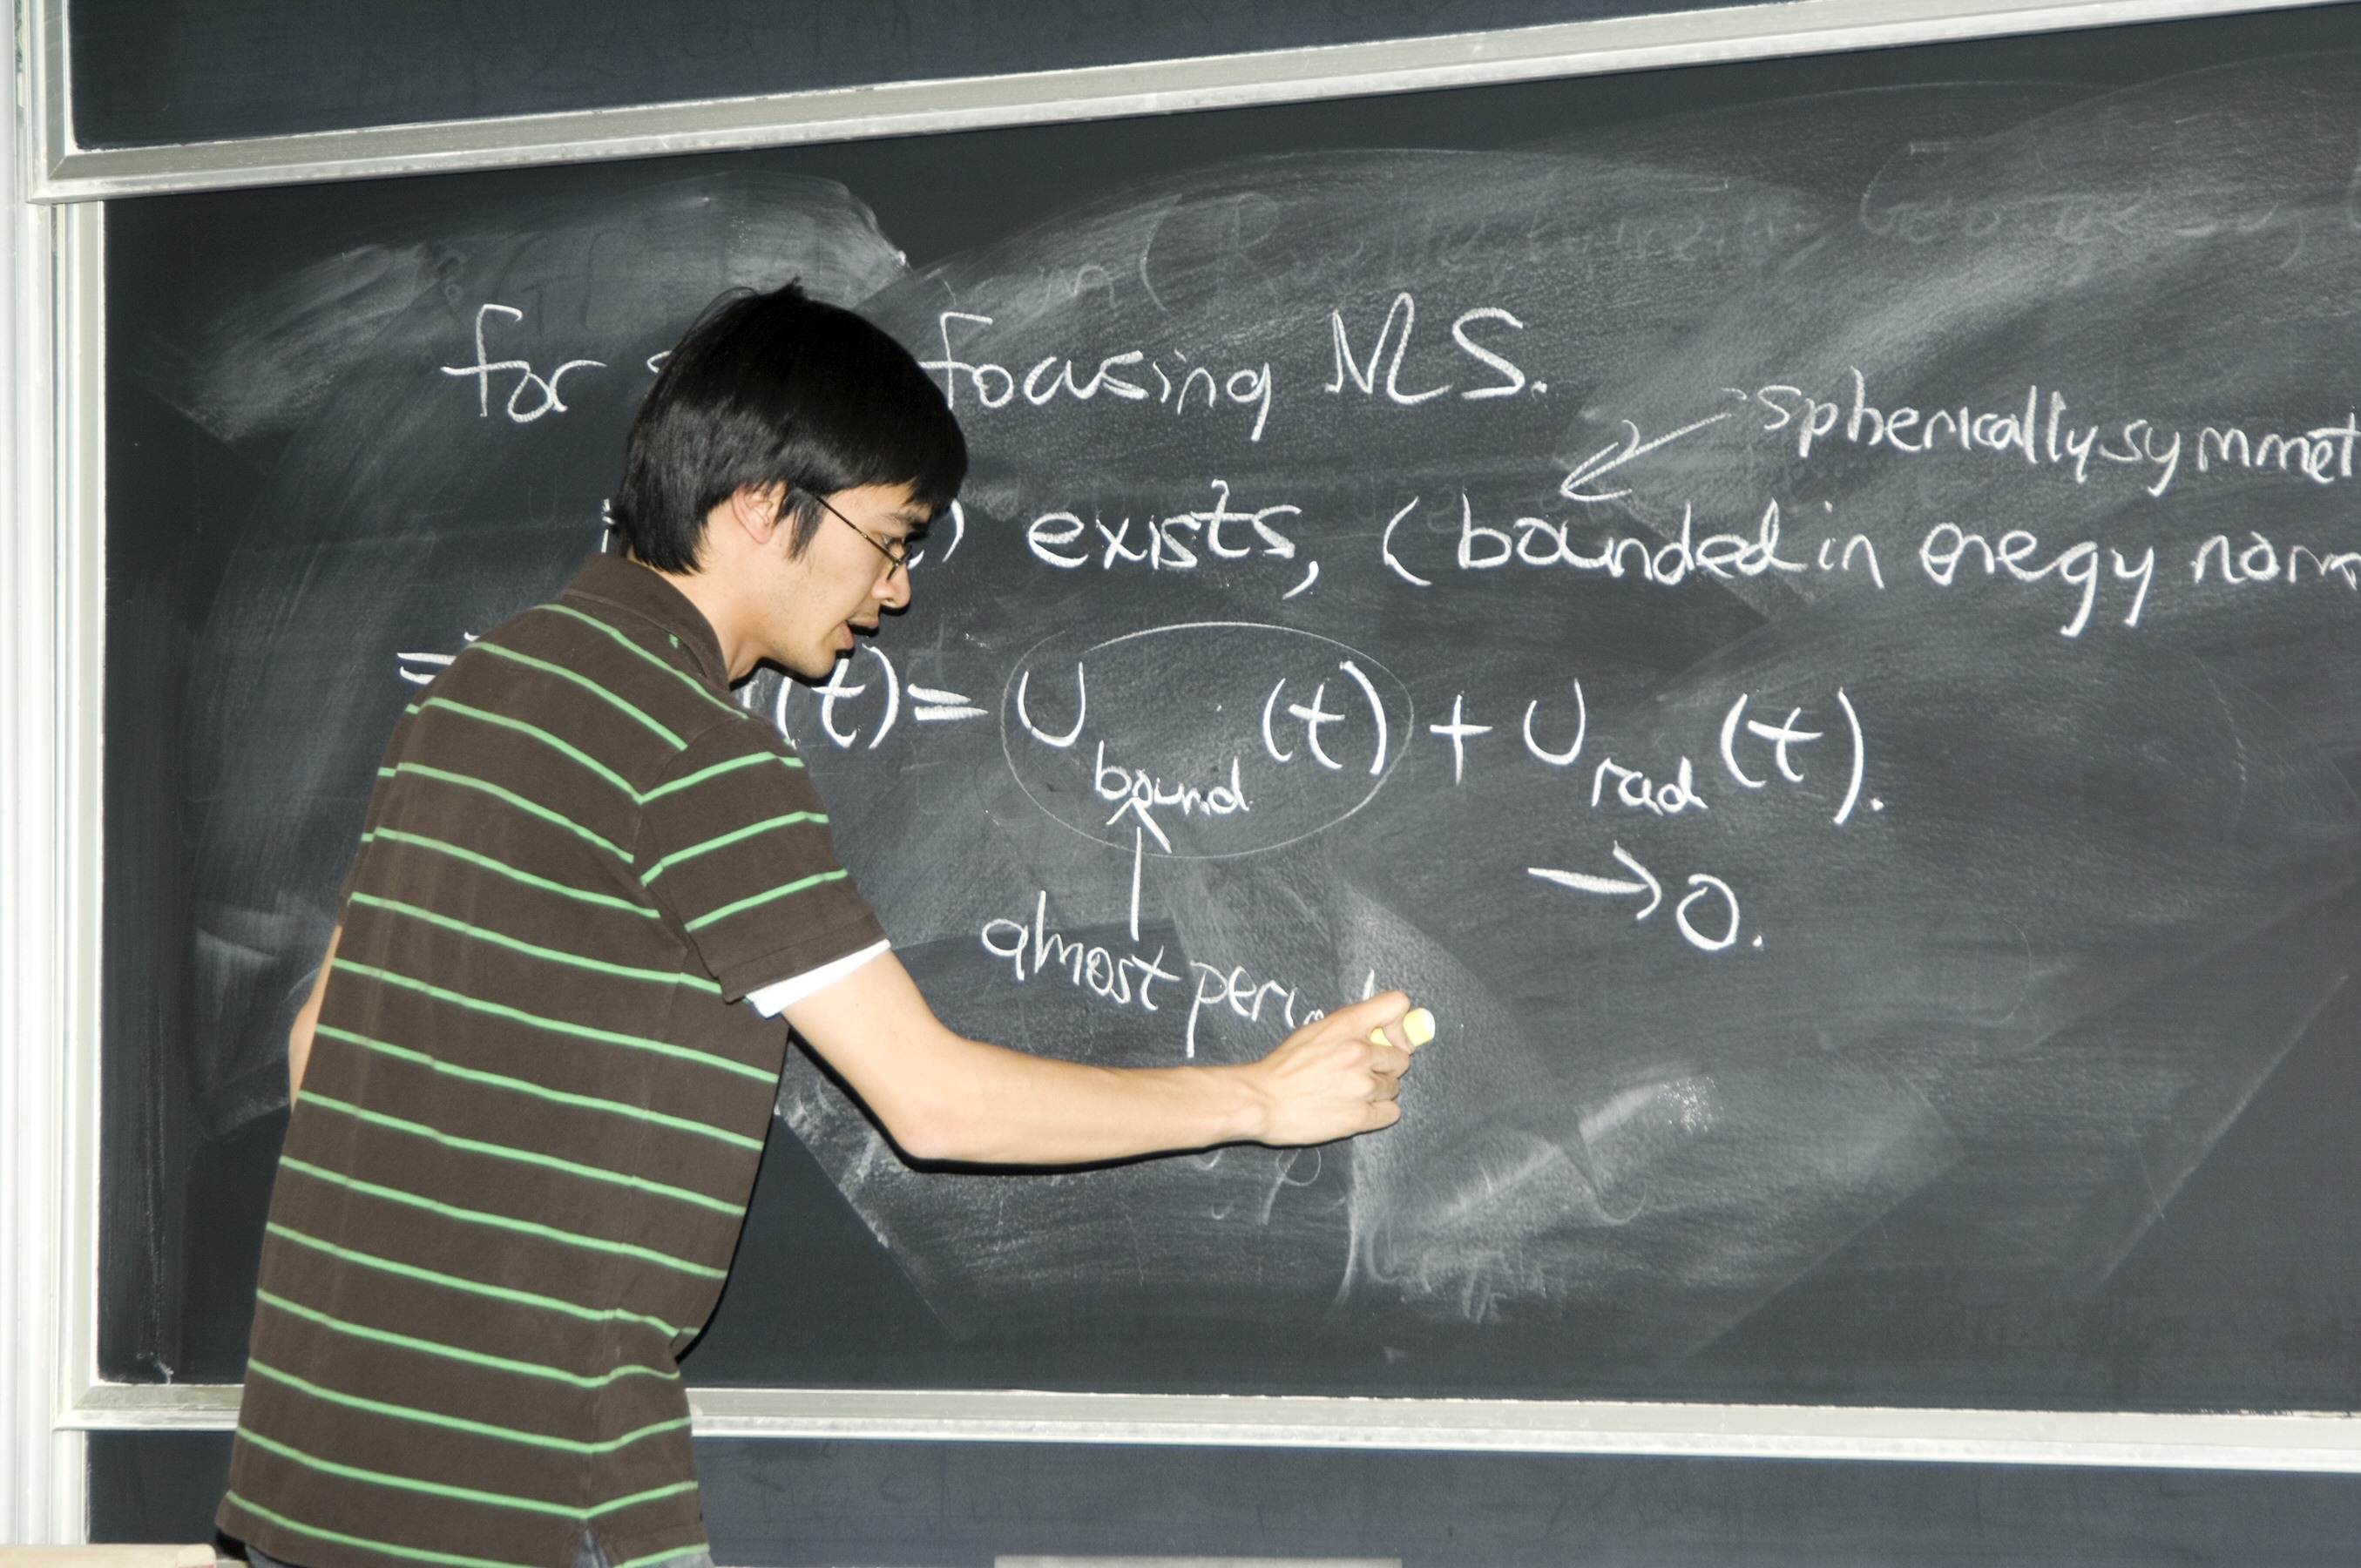 for focusing NLS.
spherically symmet
exists, (bounded in energy norm
(t) = U bound (t) + U rad (t).
→ 0.
almost peri